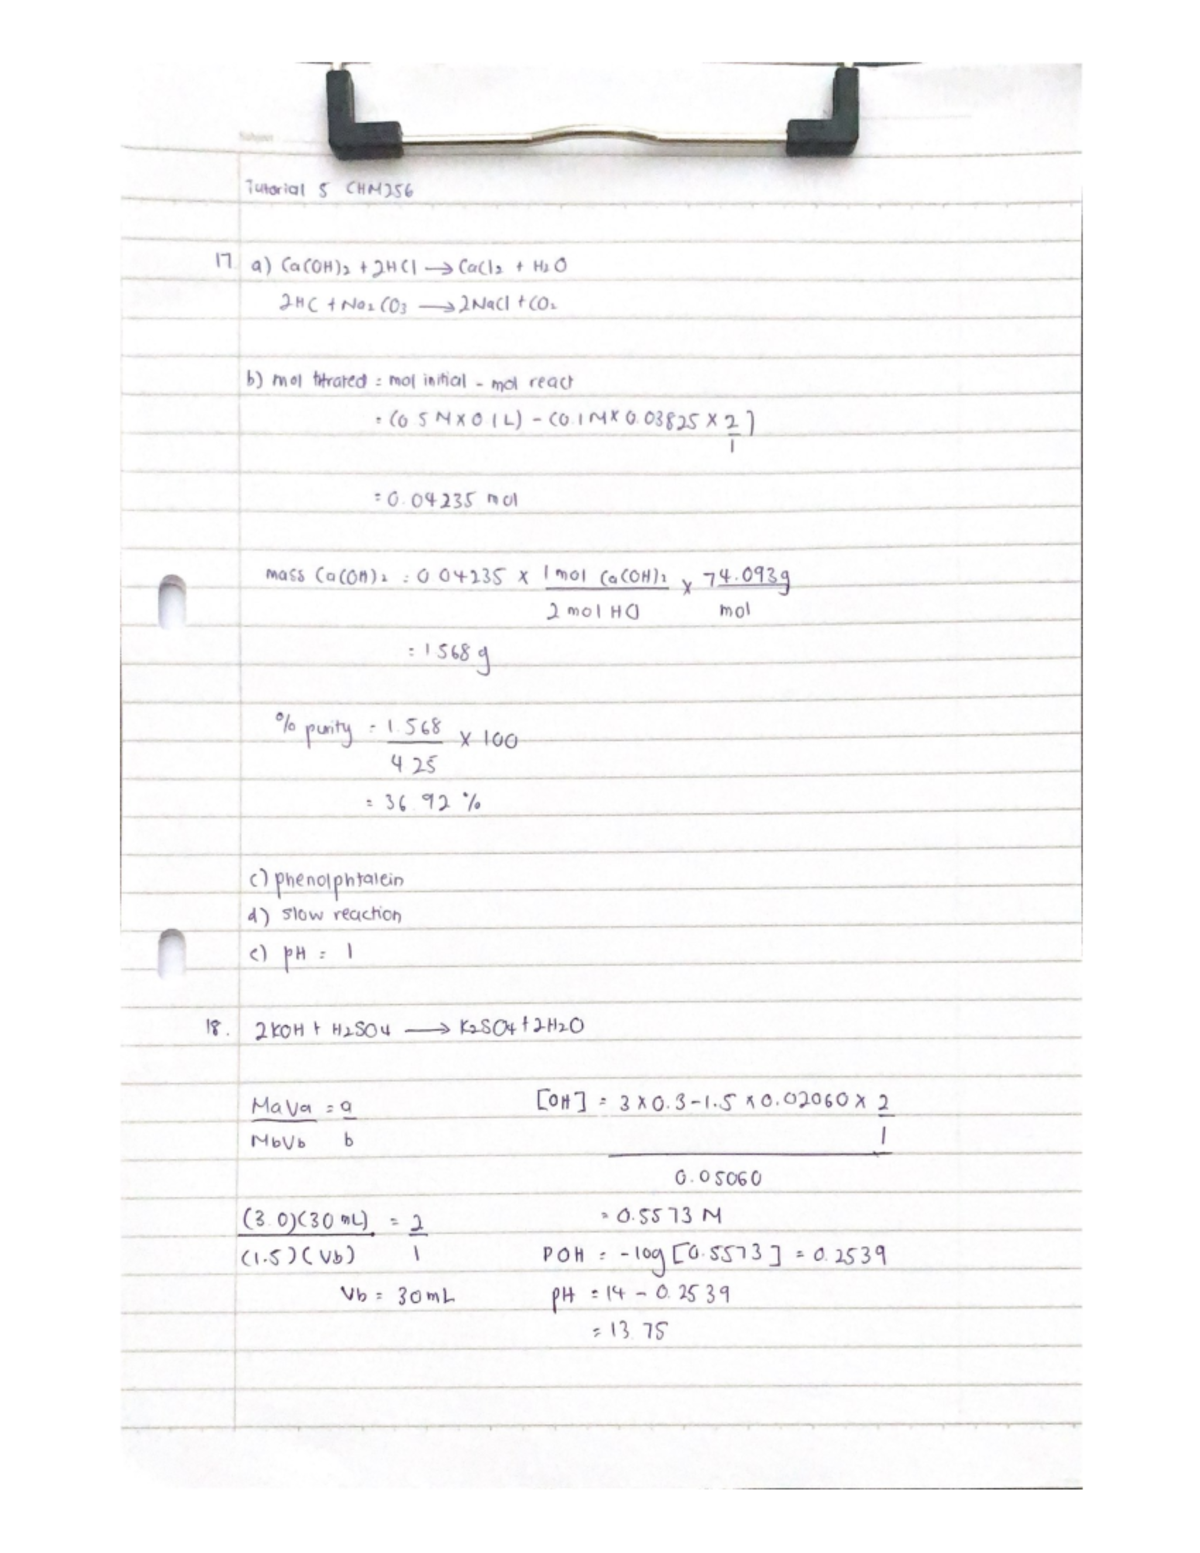 Subject
Tutorial 5 CHM256
17. a) Ca(OH)2 + 2HCl → CaCl2 + H2O
2HC + Na2CO3 → 2NaCl + CO2
b) mol titrated = mol initial - mol react
= (0.5 M × 0.1 L) - (0.1 M × 0.03825 × 2/1)
= 0.04235 mol
mass Ca(OH)2 = 0.04235 × 1 mol Ca(OH)2 / 2 mol HCl × 74.093g / mol
= 1.568 g
% purity = 1.568 / 4.25 × 100
= 36.92 %
c) phenolphtalein
d) slow reaction
e) pH = 1
18. 2KOH + H2SO4 → K2SO4 + 2H2O
MaVa / MbVb = a / b
(3.0)(30 mL) / (1.5)(Vb) = 2 / 1
Vb = 30 mL
[OH] = 3 × 0.3 - 1.5 × 0.02060 × 2/1 / 0.05060
= 0.5573 M
POH = -log [0.5573] = 0.2539
pH = 14 - 0.2539
= 13.75